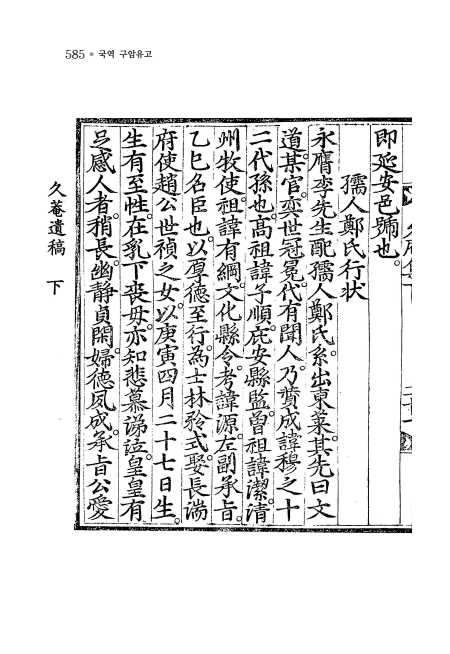 585 ● 국역 구암유고
即延安邑號也。
孺人鄭氏行狀
永膺李先生配孺人鄭氏。系出東萊。其先曰文
道某官。奕世冠冕。代有聞人。乃贊成諱穆之十
二代孫也。高祖諱子順。庇安縣監。曾祖諱潔。淸
州牧使。祖諱有綱。文化縣令。考諱源。左副承旨。
乙巳名臣也。以厚德至行爲士林矜式。娶長湍
府使趙公世禎之女。以庚寅四月二十七日生。
生有至性。在乳下喪母。亦知悲慕。涕泣皇皇有
足感人者。稍長。幽靜貞閑。婦德夙成。承旨公愛
久菴遺稿 下